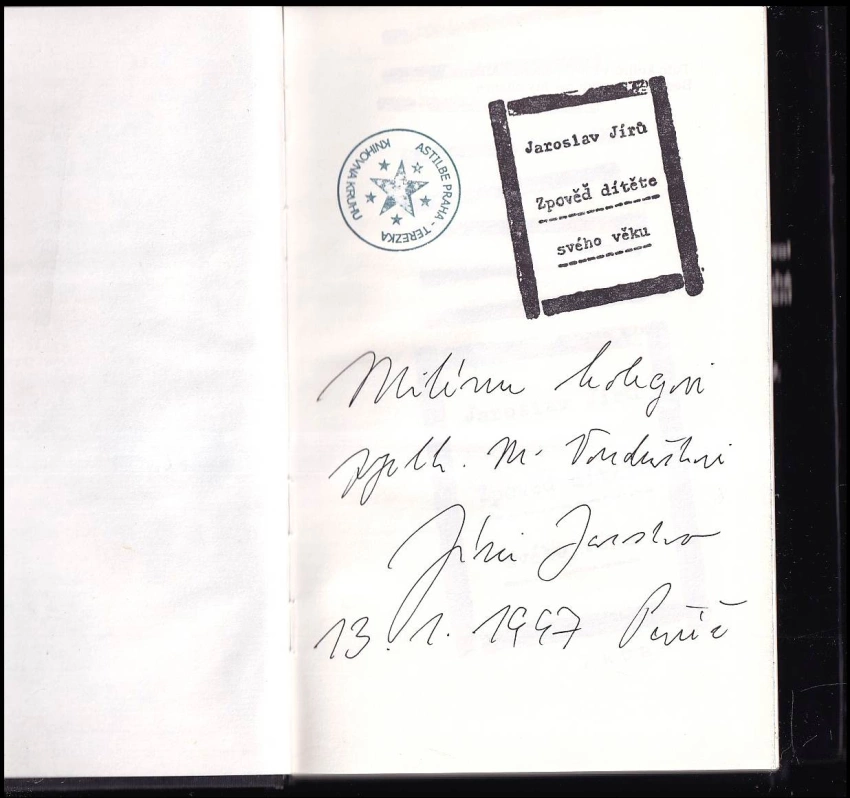 KNIHOVNA KRUHU
ASTILBE PRAHA - TEREZKA
Jaroslav Jírů
Zpověď dítěte
svého věku
Milému kolegovi
M.
Jaroslav
13. 1. 1997